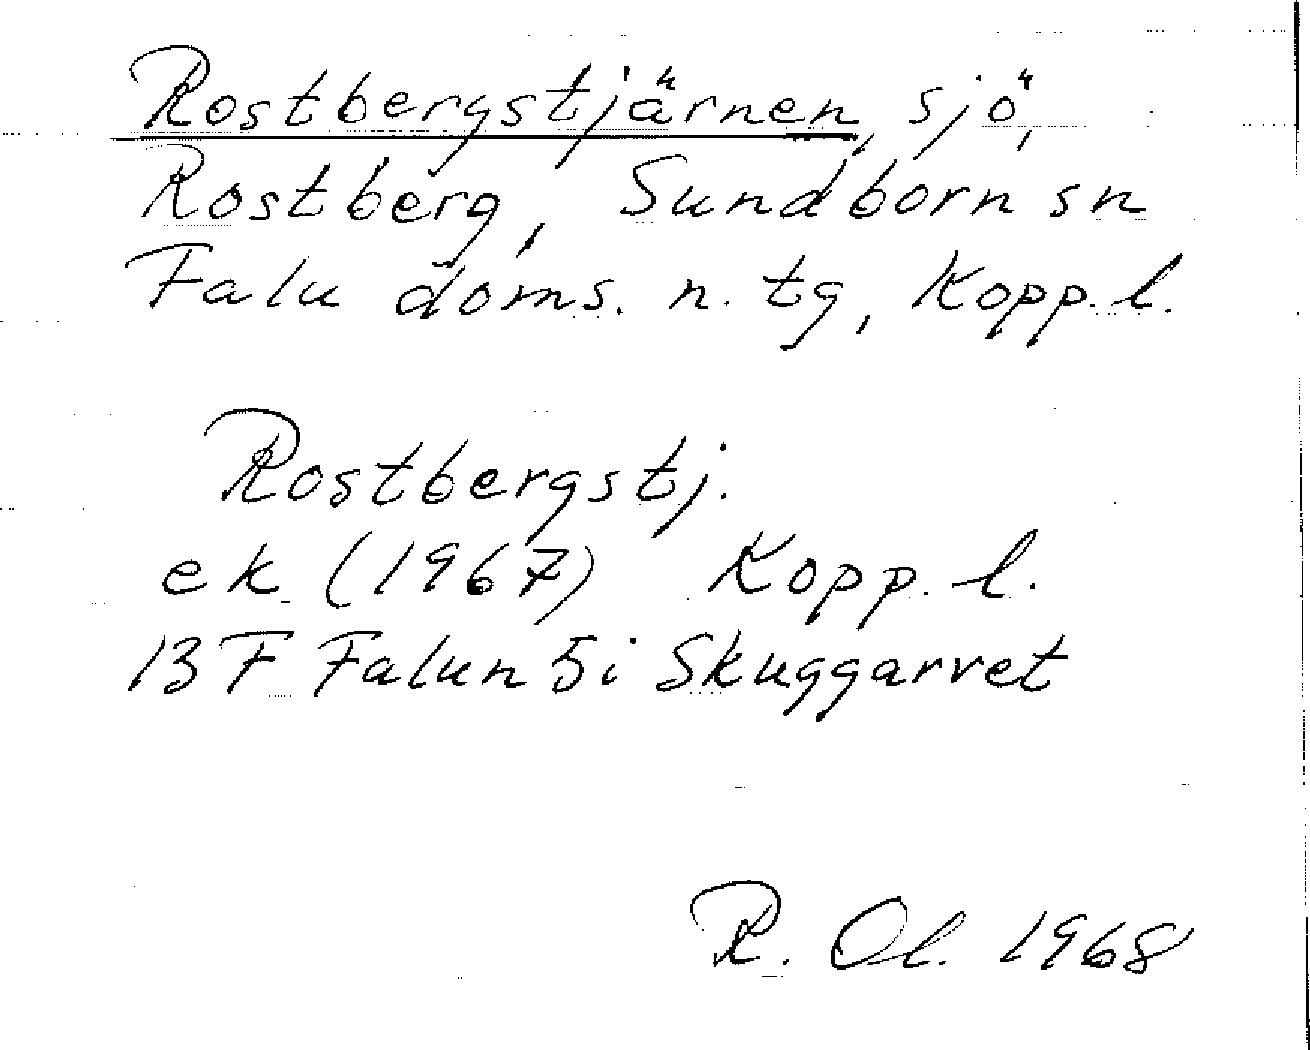 Rostbergstjärnen, sjö,
Rostberg, Sundborn sn
Falu doms. n. tg, Kopp. l.
Rostbergstj.
ek (1967) Kopp. l.
13 F Falun 5i Skuggarvet
R. Ol. 1968